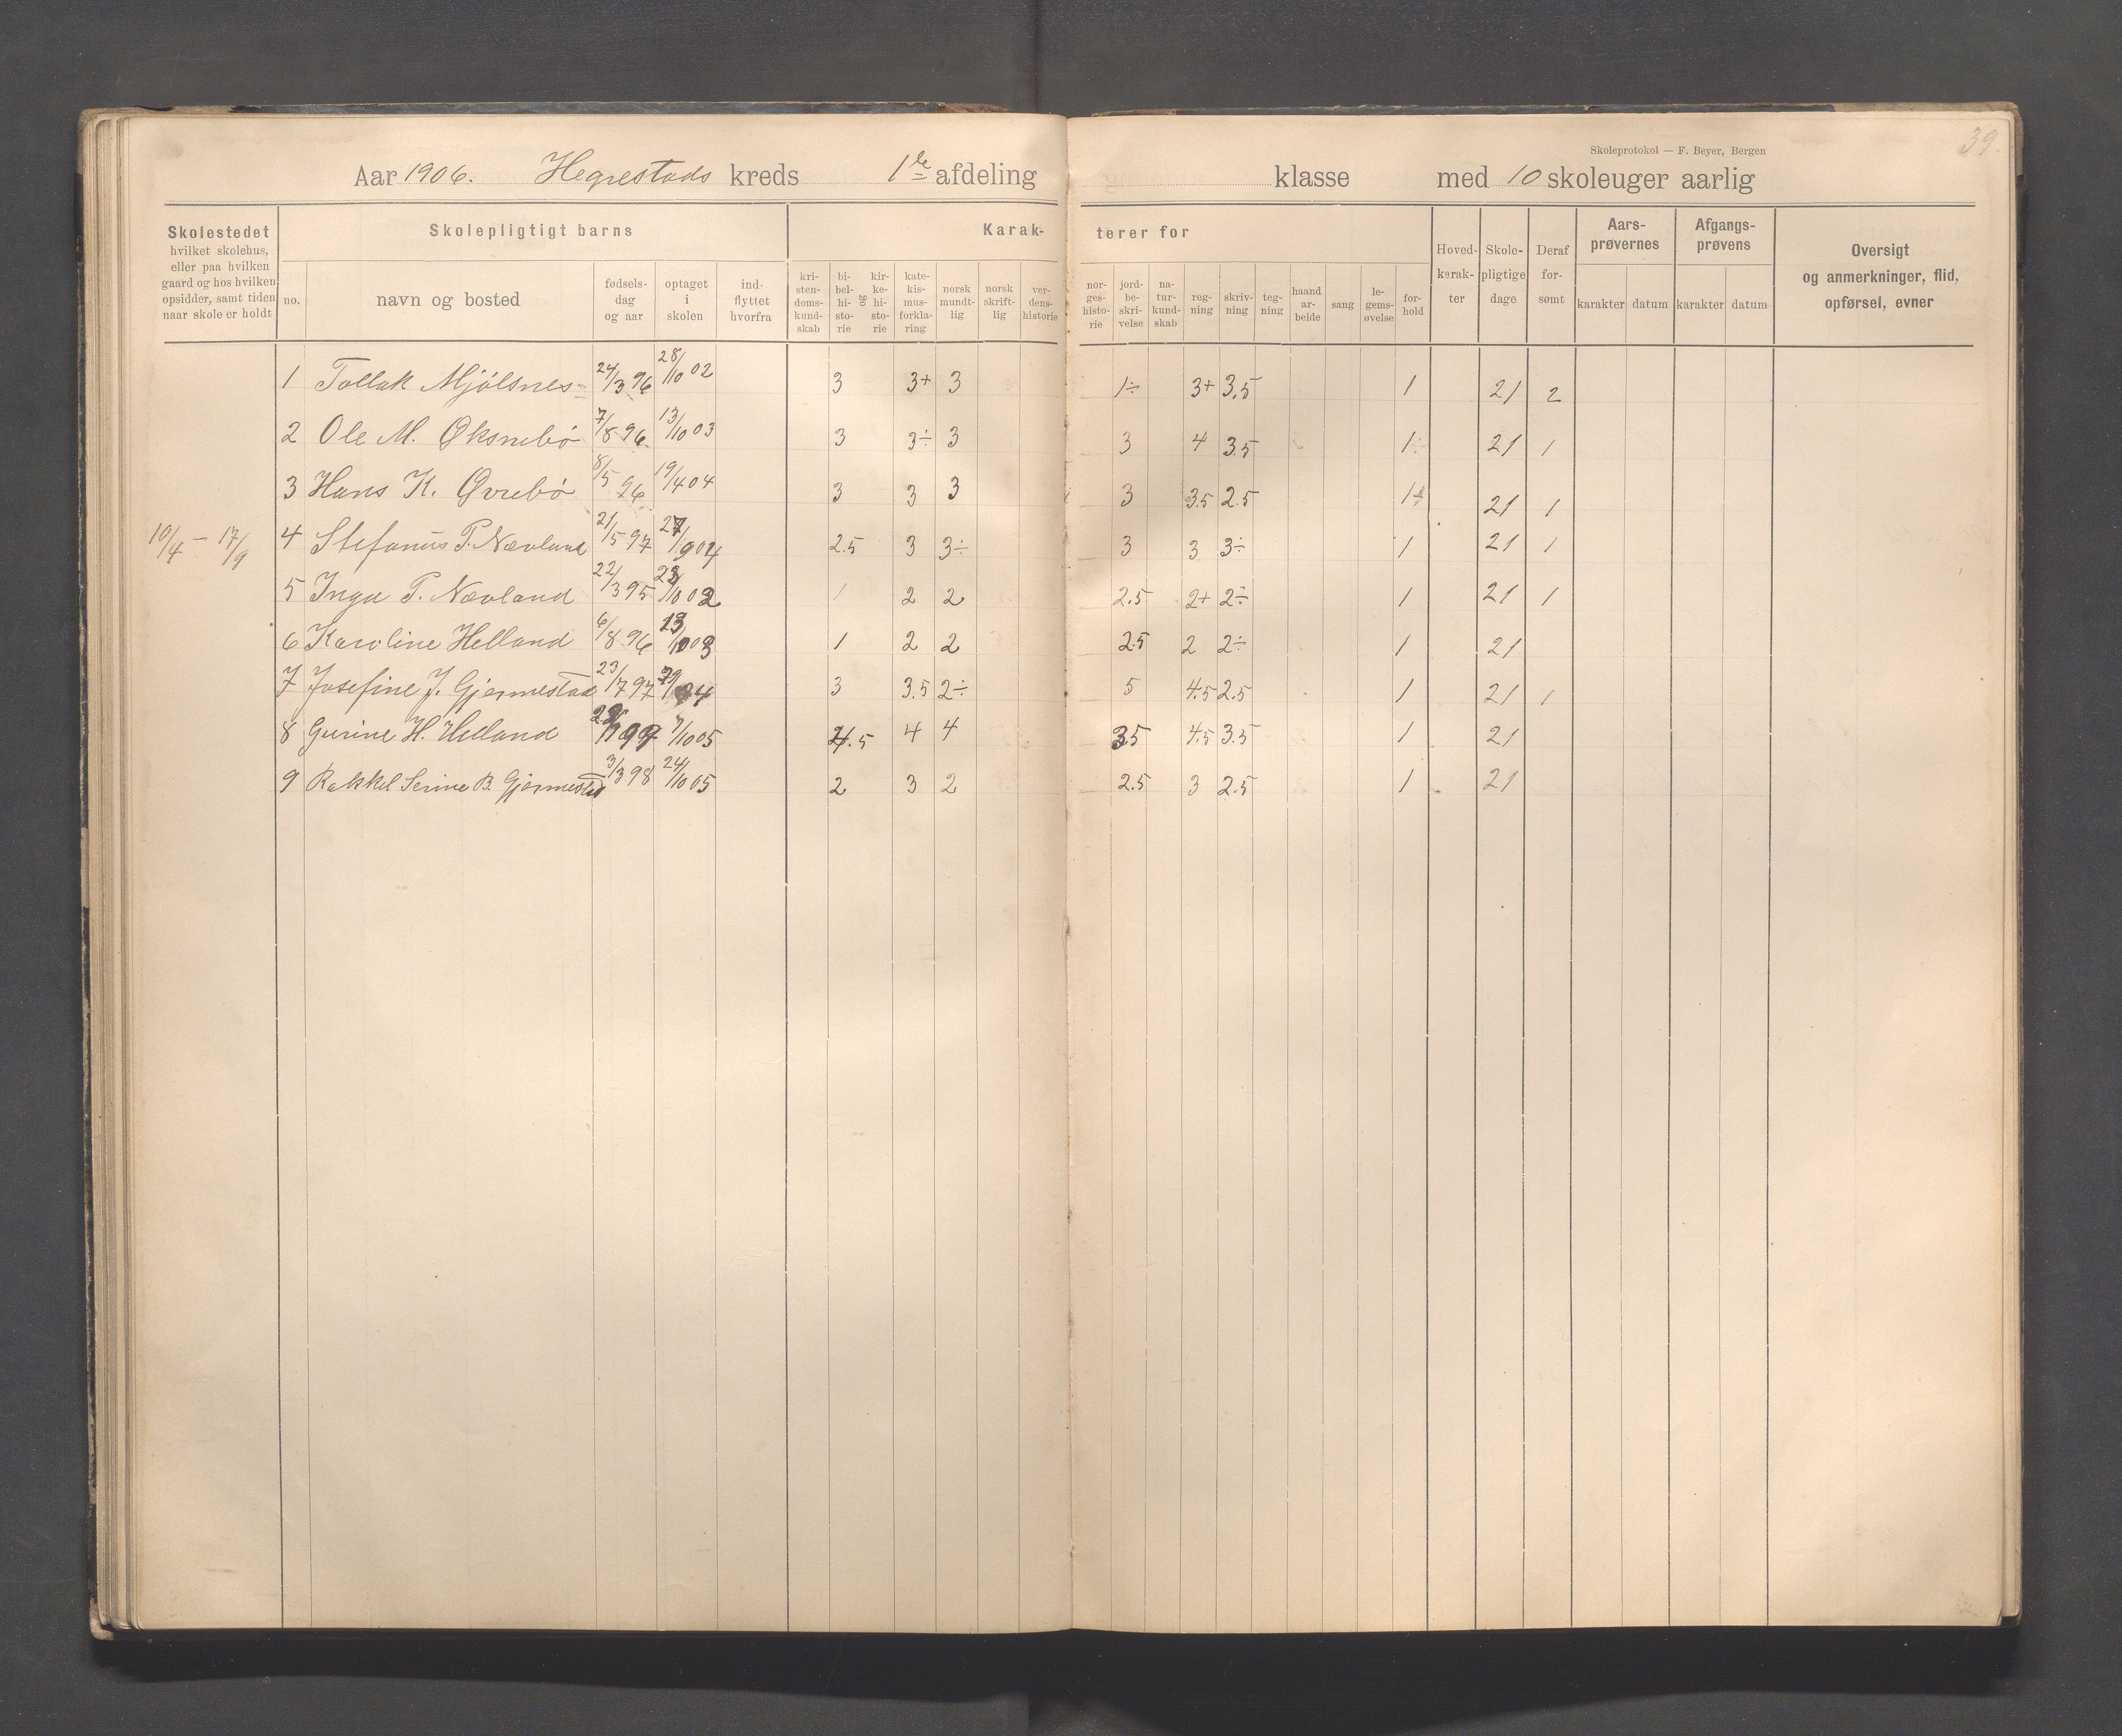 39.
Skoleprotokol — F. Beyer, Bergen
Aar 1906. Hegrestads kreds 1ste afdeling klasse med 10 skoleuger aarlig
Skolestedet
hvilket skolehus,
eller paa hvilken
gaard og hos hvilken
opsidder, samt tiden
naar skole er holdt
Skolepligtigt barns
no.
navn og bosted
fødsels-
dag
og aar
optaget
i
skolen
ind-
flyttet
hvorfra
Karak-
terer for
kri-
sten-
doms-
kund-
skab
bi-
bel-
hi-
sto-
rie
og
kir-
ke-
hi-
sto-
rie
kate-
kis-
mus-
forkla-
ring
norsk
mundt-
lig
norsk
skrift-
lig
ver-
dens-
historie
nor-
ges-
histo-
rie
jord-
be-
skri-
velse
na-
tur-
kund-
skab
reg-
ning
skriv-
ning
teg-
ning
haand
ar-
beide
sang
le-
gems-
øvelse
for-
hold
Hoved-
karak-
ter
Skole-
pligtige
dage
Deraf
for-
sømt
Aars-
prøvernes
karakter datum
Afgangs-
prøvens
karakter datum
Oversigt
og anmerkninger, flid,
opførsel, evner
1 Tollak Mjölsnes 24/3 96 28/10 02 3 3+ 3 1÷ 3+ 3,5 1 21 2
2 Ole M. Øksnebø 7/8 96. 13/10 03 3 3÷ 3 3 4 3.5 1÷ 21 1
3 Hans K. Øvrebø 8/5 96 19/4 04 3 3 3 3 3.5 2.5 1 21 1
10/4 — 17/9 4 Stefanus P. Nævland 21/5 97 27/9 04 2.5 3 3÷ 3 3 3÷ 1 21 1
5 Inga P. Nævland 22/3 95 28/10 02 1 2 2 2.5 2+ 2÷ 1 21 1
6 Karoline Helland 6/8 96 13/10 03 1 2 2 2.5 2 2÷ 1 21
7 Josefine J. Gjermestad 23/7 97 04 3 3.5 2÷ 5 4.5 2.5 1 21 1
8 Gurine H. Helland 97 7/10 05 .5 4 4 3.5 4.5 3.5 1 21
9 Rakkel Serine B. Gjermestad 3/3 98 24/10 05 2 3 2 2.5 3 2.5 1 21